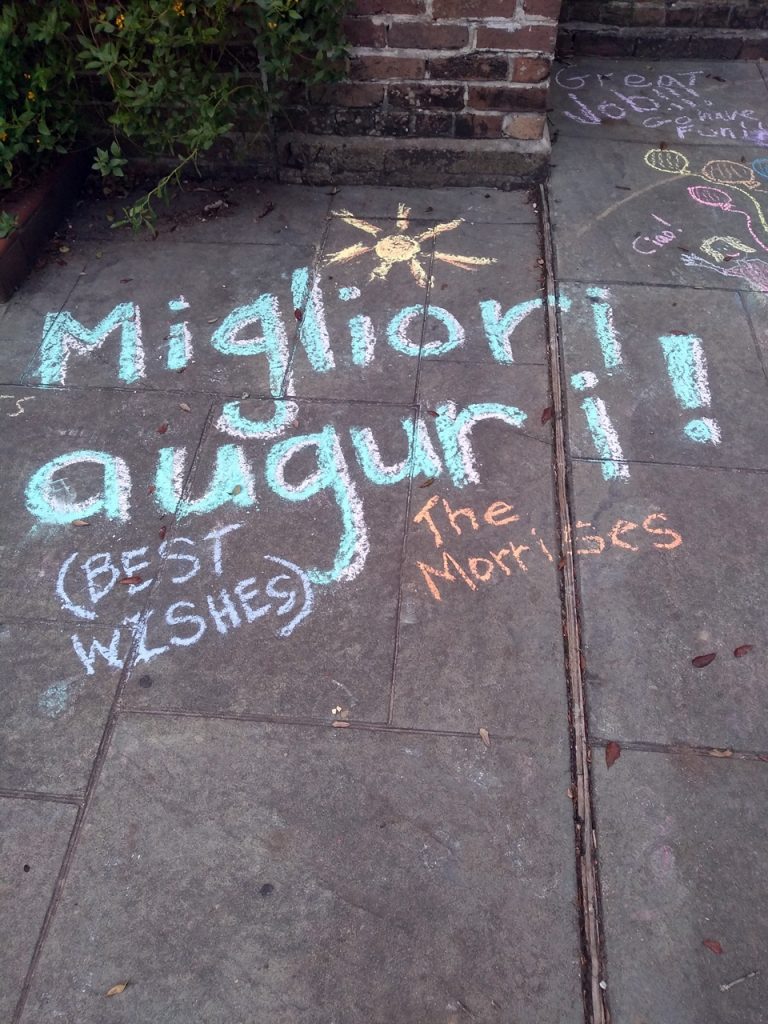 Great
Job!!!
Go have
Fun!
Ciao!
Migliori
auguri!
(BEST
WISHES)
The
Morrises